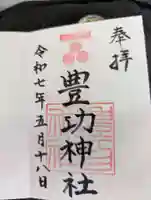 奉拝
豊功神社
令和七年五月十八日